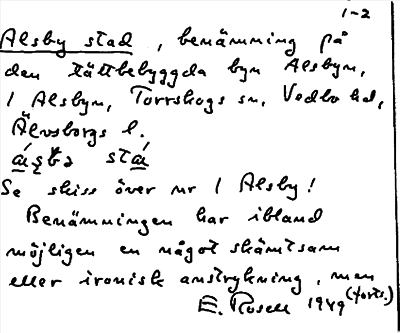 1-2
Alsby stad, benämning på
den tättbebyggda byn Alsbyn,
1 Alsbyn, Torrskogs sn, Vedbo hd,
Älvsborgs l.
stá
Se skiss över nr 1 Alsby!
Benämningen har ibland
möjligen en något skämtsam
eller ironisk anstrykning, men
E. Rosell 1949 (forts.)